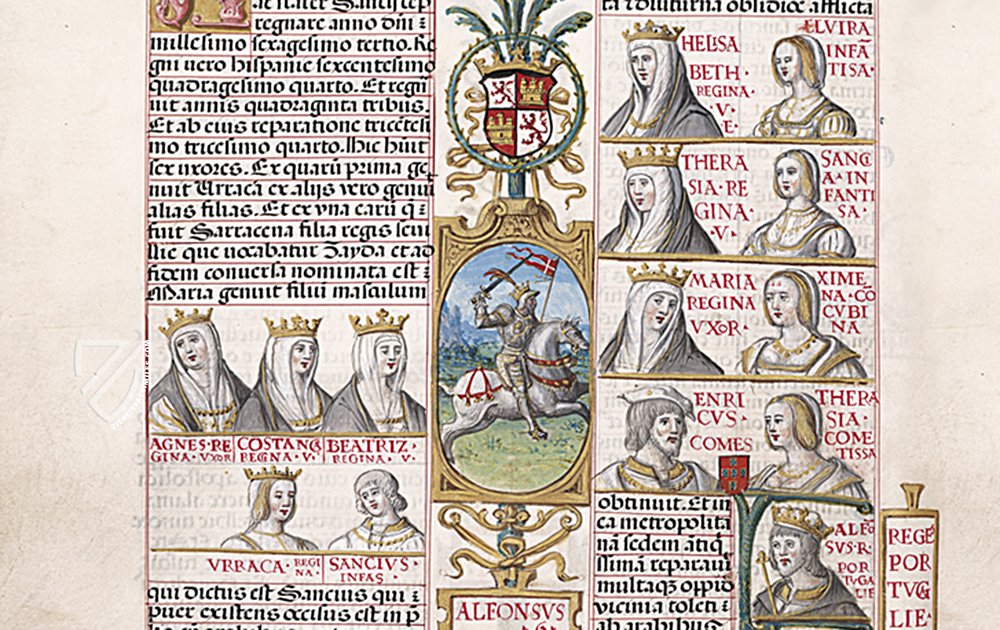 regnare anno dñi
millesimo sexagesimo tertio. Re
gni vero hispanie sexcentesimo
quadragesimo quarto. Et regn
uit annis quadraginta tribus.
Et ab eius reparatione tricentesi
mo tricesimo quarto. Hic huit
sex uxores. Ex quarũ prima ge
nuit Urraca ex alijs vero genuit
alias filias. Et ex vna earũ q̃
fuit Sarracena filia regis seui
llie que vocabatur Zayda et ad
fidem conuersa nominata est
Maria genuit filiũ masculum
AGNES·RE
GINA·VXOR
COSTANÇ
REGNA·V·
BEATRIZ·
REGINA·V·
VRRACA·REGI
NA·
SANCIVS·
INFAS·
qui dictus est Sancius qui
puer existens occisus est in p
ALFONSVS
ta ⁊ diuturna obsidiõe afflicta
HELISA
BETH·
REGINA
·V·
·E·
ELVIRA
INFÃ
TISA·
THERA
SIA·RE
GINA·
·V·
SANCI
A·IN
FANTI
SA·
MARIA
REGINA
VXOR·
XIME
NA·CO
CVBI
NA
ENRI
CVS·
COMES
THERA
SIA·
COME
TISSA·
obtinuit. Et in
ea metropolita
nã sedem antiq
issimã reparauit
multaq oppido
vicinia toleti
ab arabibus
ALFÕ
SVS·R·
POR
TVGA
LIE·
REGES
POR
TVG
LIE·